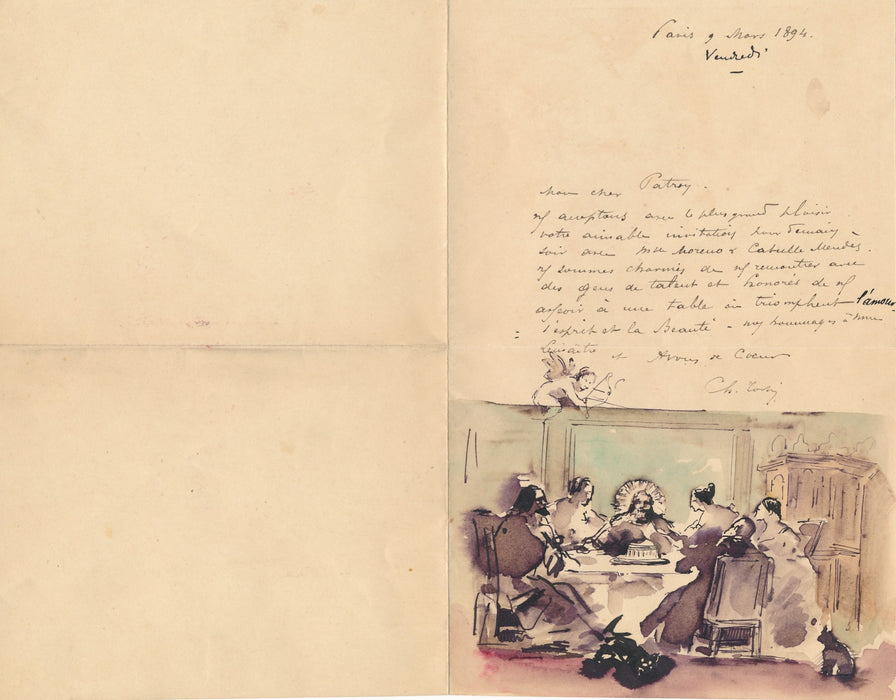 Paris 9 Mars 1894.
Vendredi
Mon cher Patrey.
nſ acceptons avec le plus grand plaisir
votre aimable invitation pour demain
soir avec Mlle Moreno & Catulle Mendes.
nſ sommes charmés de nſ rencontrer avec
des gens de talent et honorés de nſ
asseoir à une table où triomphent l'amour
l'esprit et la Beauté - nos hommages à Mme
Lemaître et à vous de Coeur
Ch.